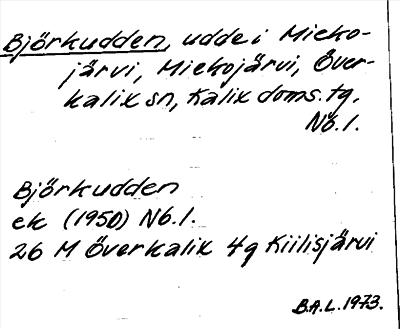 Björkudden, udde i Mieko-
järvi, Miekojärvi, Över-
kalix sn, Kalix doms. tg.
Nb.l.
Björkudden
ek (1950) Nb.l.
26 M Överkalix 4g Kiilisjärvi
B.A.L. 1973.